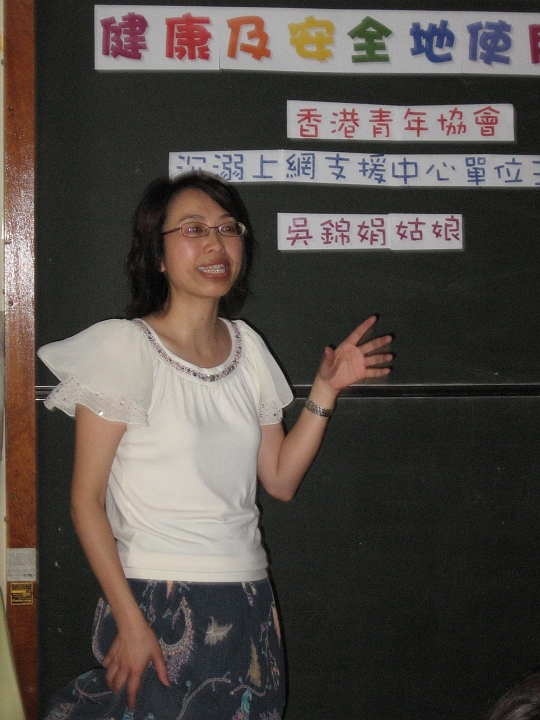 健康及安全地使
香港青年協會
沉溺上網支援中心單位主
吳錦娟姑娘